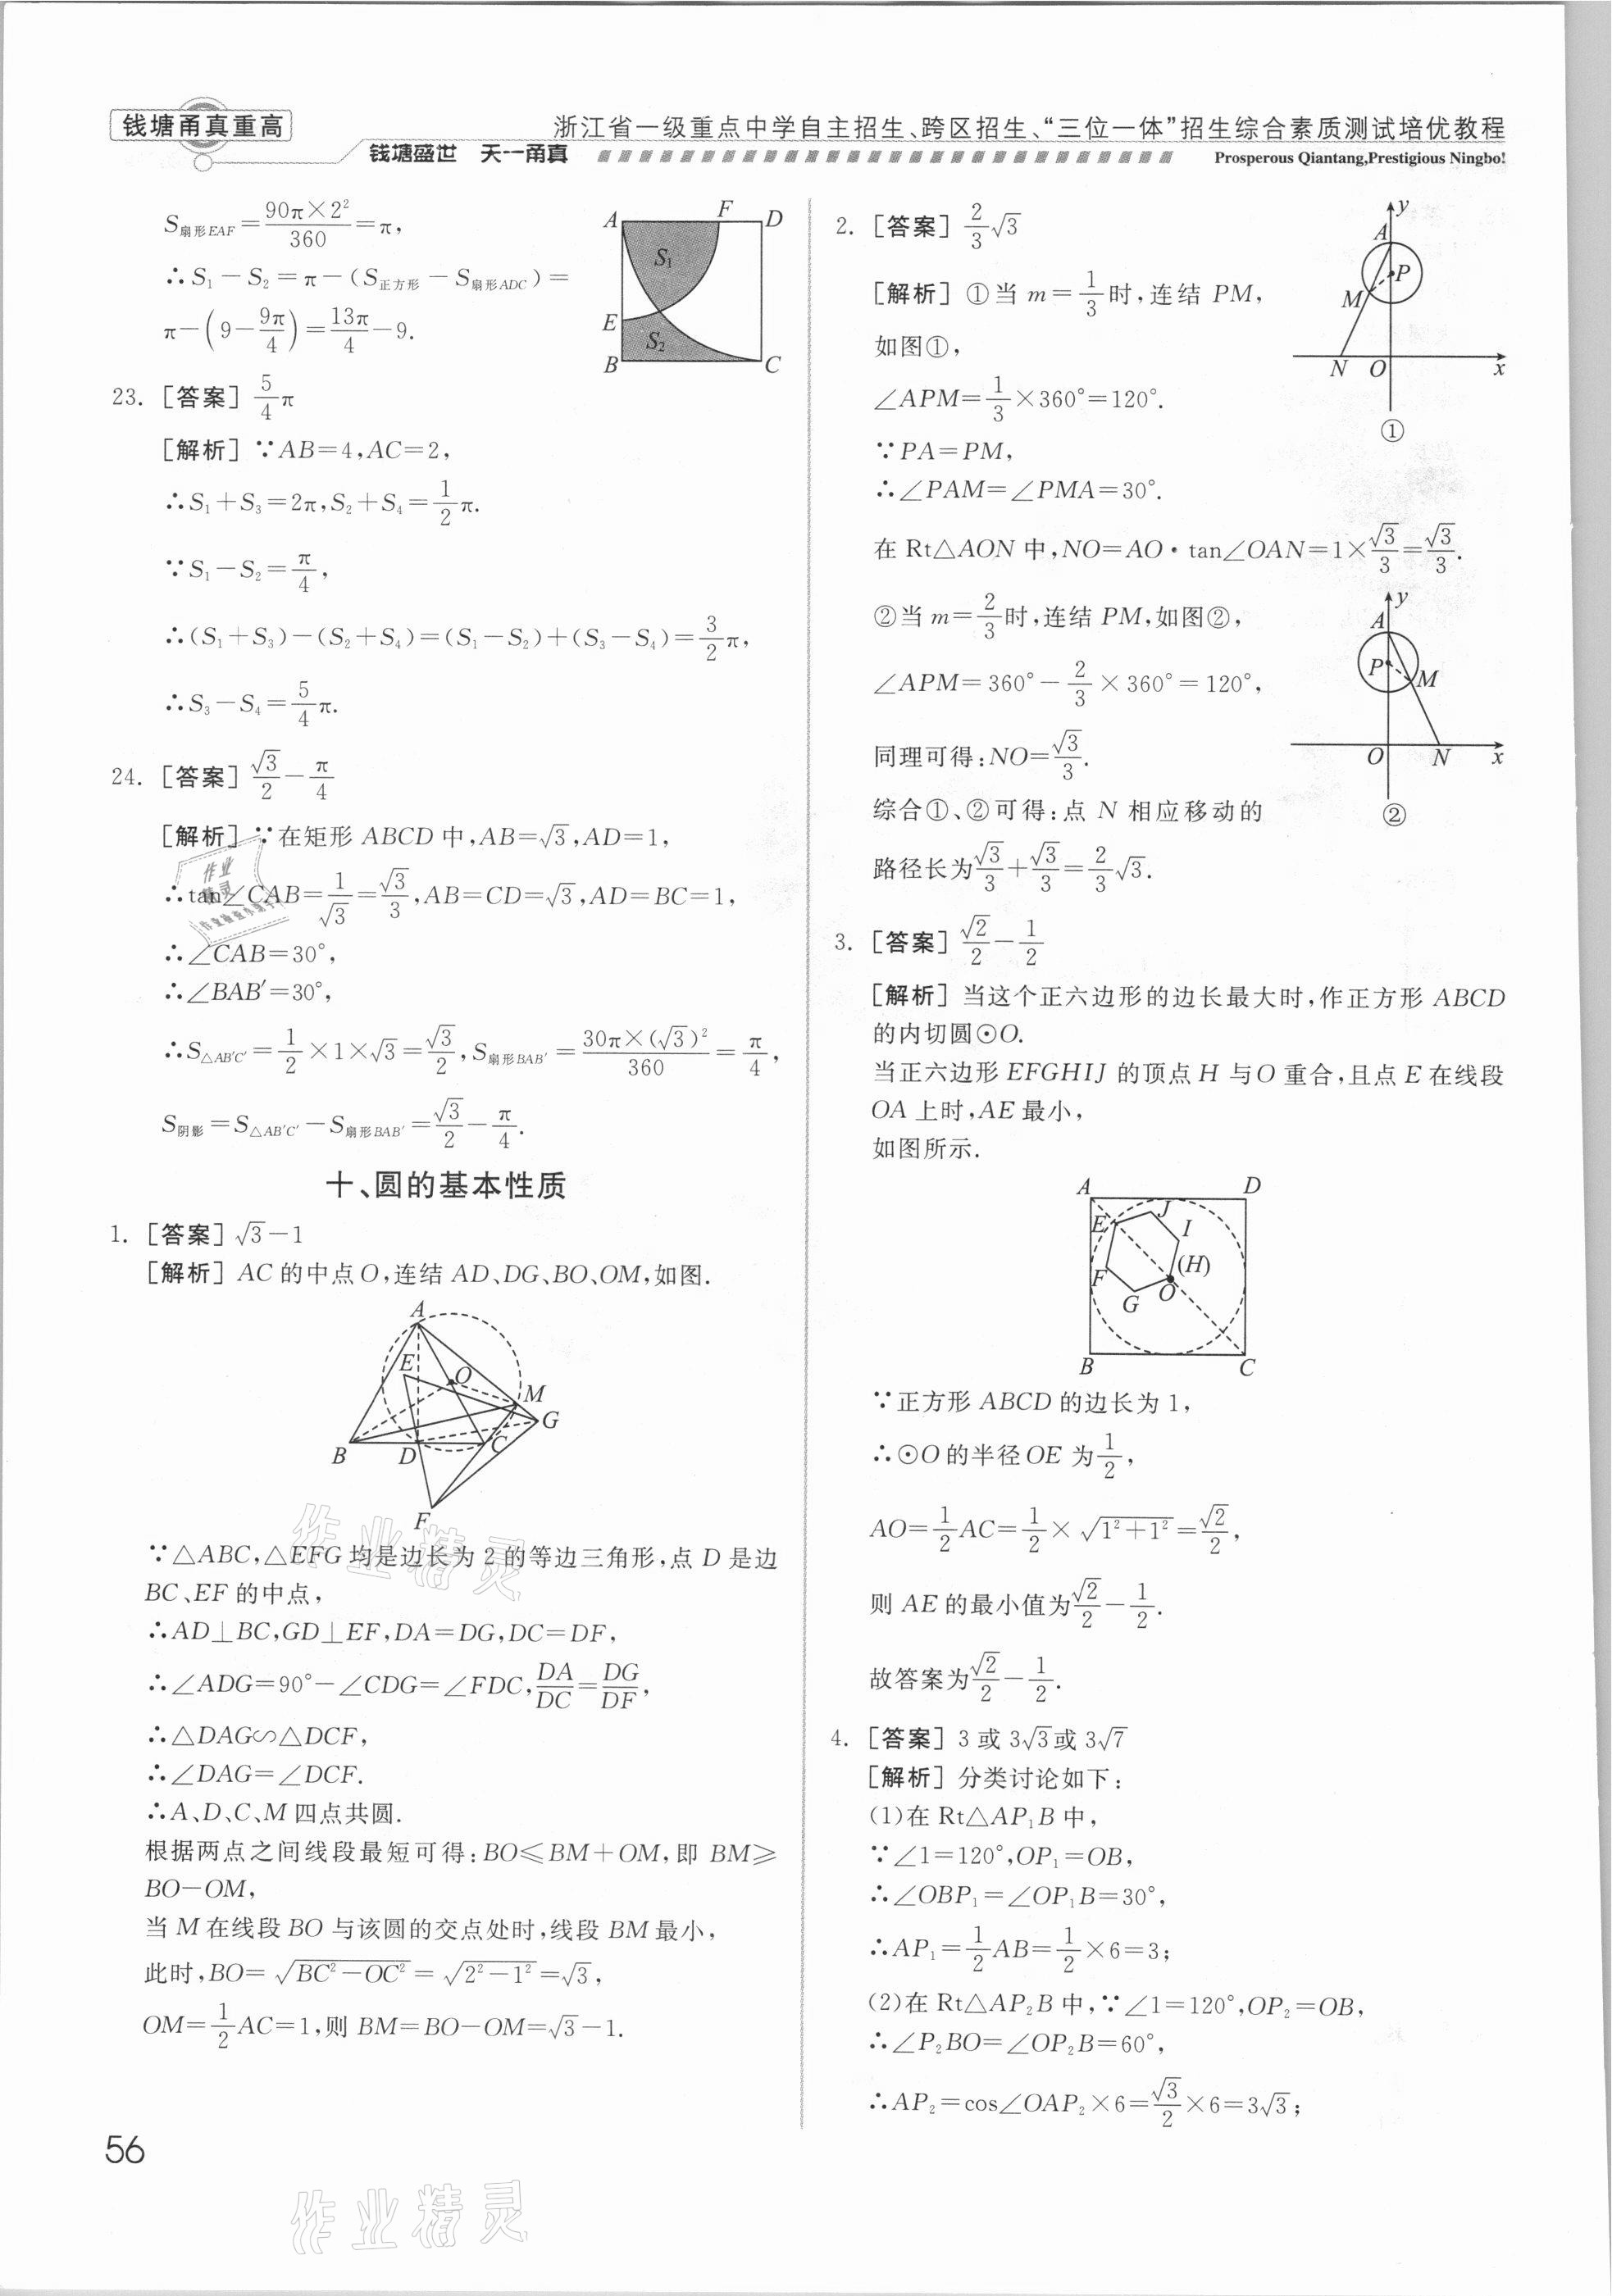 钱塘甬真重高
浙江省一级重点中学自主招生、跨区招生、“三位一体”招生综合素质测试培优教程
钱塘盛世 天一甬真
Prosperous Qiantang,Prestigious Ningbo!
S扇形EAF=90π×2²/360=π,
∴S₁-S₂=π-(S正方形-S扇形ADC)=
π-(9-9π/4)=13π/4-9.
A F D
S₁
E
S₂
B C
23. [答案] 5/4π
[解析] ∵AB=4,AC=2,
∴S₁+S₃=2π,S₂+S₄=1/2π.
∵S₁-S₂=π/4,
∴(S₁+S₃)-(S₂+S₄)=(S₁-S₂)+(S₃-S₄)=3/2π,
∴S₃-S₄=5/4π.
24. [答案] √3/2-π/4
[解析] ∵在矩形 ABCD 中,AB=√3,AD=1,
∴tan∠CAB=1/√3=√3/3,AB=CD=√3,AD=BC=1,
∴∠CAB=30°,
∴∠BAB′=30°,
∴S△AB′C′=1/2×1×√3=√3/2,S扇形BAB′=30π×(√3)²/360=π/4,
S阴影=S△AB′C′-S扇形BAB′=√3/2-π/4.
十、圆的基本性质
1. [答案] √3-1
[解析] AC 的中点 O,连结 AD、DG、BO、OM,如图.
A
E
O
M
G
B D C
F
∵△ABC,△EFG 均是边长为 2 的等边三角形,点 D 是边
BC、EF 的中点,
∴AD⊥BC,GD⊥EF,DA=DG,DC=DF,
∴∠ADG=90°-∠CDG=∠FDC,DA/DC=DG/DF,
∴△DAG∽△DCF,
∴∠DAG=∠DCF.
∴A、D、C、M 四点共圆.
根据两点之间线段最短可得:BO≤BM+OM,即 BM≥
BO-OM,
当 M 在线段 BO 与该圆的交点处时,线段 BM 最小,
此时,BO=√(BC²-OC²)=√(2²-1²)=√3,
OM=1/2AC=1,则 BM=BO-OM=√3-1.
2. [答案] 2/3√3
[解析] ①当 m=1/3时,连结 PM,
如图①,
∠APM=1/3×360°=120°.
∵PA=PM,
∴∠PAM=∠PMA=30°.
y
A
P
M
N O x
①
在 Rt△AON 中,NO=AO·tan∠OAN=1×√3/3=√3/3.
②当 m=2/3时,连结 PM,如图②,
∠APM=360°-2/3×360°=120°,
同理可得:NO=√3/3.
综合①、②可得:点 N 相应移动的
路径长为√3/3+√3/3=2/3√3.
y
A
P
M
O N x
②
3. [答案] √2/2-1/2
[解析] 当这个正六边形的边长最大时,作正方形 ABCD
的内切圆⊙O.
当正六边形 EFGHIJ 的顶点 H 与 O 重合,且点 E 在线段
OA 上时,AE 最小,
如图所示.
A D
E J
I
F (H)
G O
B C
∵正方形 ABCD 的边长为 1,
∴⊙O 的半径 OE 为1/2,
AO=1/2AC=1/2×√(1²+1²)=√2/2,
则 AE 的最小值为√2/2-1/2.
故答案为√2/2-1/2.
4. [答案] 3 或 3√3或 3√7
[解析] 分类讨论如下:
(1)在 Rt△AP₁B 中,
∵∠1=120°,OP₁=OB,
∴∠OBP₁=∠OP₁B=30°,
∴AP₁=1/2AB=1/2×6=3;
(2)在 Rt△AP₂B 中,∵∠1=120°,OP₂=OB,
∴∠P₂BO=∠OP₂B=60°,
∴AP₂=cos∠OAP₂×6=√3/2×6=3√3;
56
作业精灵
作业精灵
作业精灵